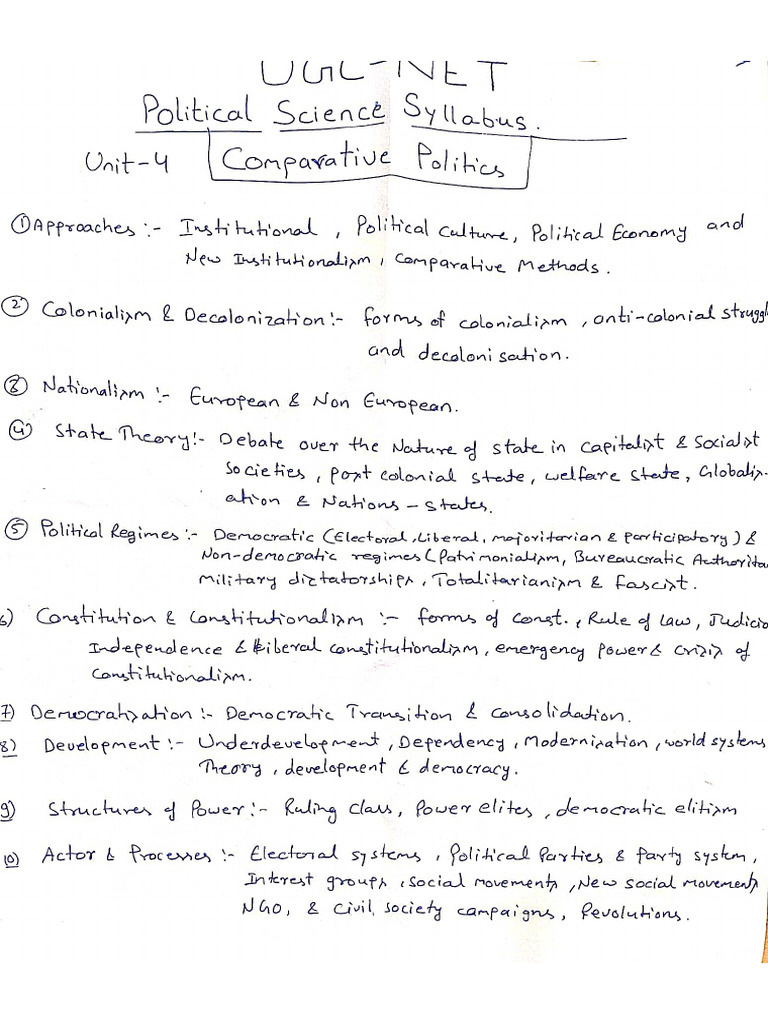 UGC-NET
Political Science Syllabus.
Unit-4 Comparative Politics
① Approaches :- Institutional, Political Culture, Political Economy and
New Institutionalism, Comparative Methods.
② Colonialism & Decolonization :- forms of colonialism, anti-colonial struggle
and decolonisation.
③ Nationalism :- European & Non European.
④ State Theory :- Debate over the Nature of state in capitalist & Socialist
Societies, post colonial state, welfare state, Globaliz-
ation & Nations-states.
⑤ Political Regimes :- Democratic (Electoral, Liberal, majoritarian & participatory) &
Non-democratic regimes (Patrimonialism, Bureaucratic Authorita
Military dictatorships, Totalitarianism & fascist.
6) Constitution & Constitutionalism :- forms of const., Rule of Law, Judicia
Independence & Liberal constitutionalism, emergency power & crisis of
Constitutionalism.
7) Democratization :- Democratic Transition & consolidation.
8) Development :- Underdevelopment, Dependency, Modernization, world systems
Theory, development & democracy.
9) Structures of Power :- Ruling class, Power elites, democratic elitism
10) Actor & Processes :- Electoral systems, Political Parties & Party system,
Interest groups, social movements, New social movements
NGO, & Civil society campaigns, Revolutions.